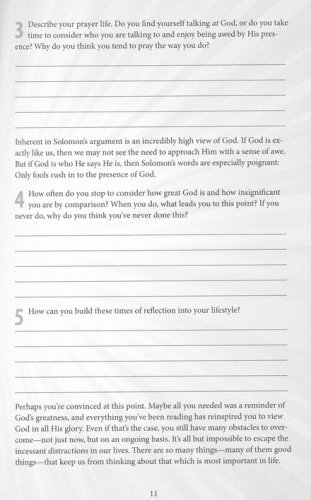 3 Describe your prayer life. Do you find yourself talking at God, or do you take
time to consider who you are talking to and enjoy being awed by His pres-
ence? Why do you think you tend to pray the way you do?
Inherent in Solomon's argument is an incredibly high view of God. If God is ex-
actly like us, then we may not see the need to approach Him with a sense of awe.
But if God is who He says He is, then Solomon's words are especially poignant:
Only fools rush in to the presence of God.
4 How often do you stop to consider how great God is and how insignificant
you are by comparison? When you do, what leads you to this point? If you
never do, why do you think you've never done this?
5 How can you build these times of reflection into your lifestyle?
Perhaps you're convinced at this point. Maybe all you needed was a reminder of
God's greatness, and everything you've been reading has reinspired you to view
God in all His glory. Even if that's the case, you still have many obstacles to over-
come—not just now, but on an ongoing basis. It's all but impossible to escape the
incessant distractions in our lives. There are so many things—many of them good
things—that keep us from thinking about that which is most important in life.
11